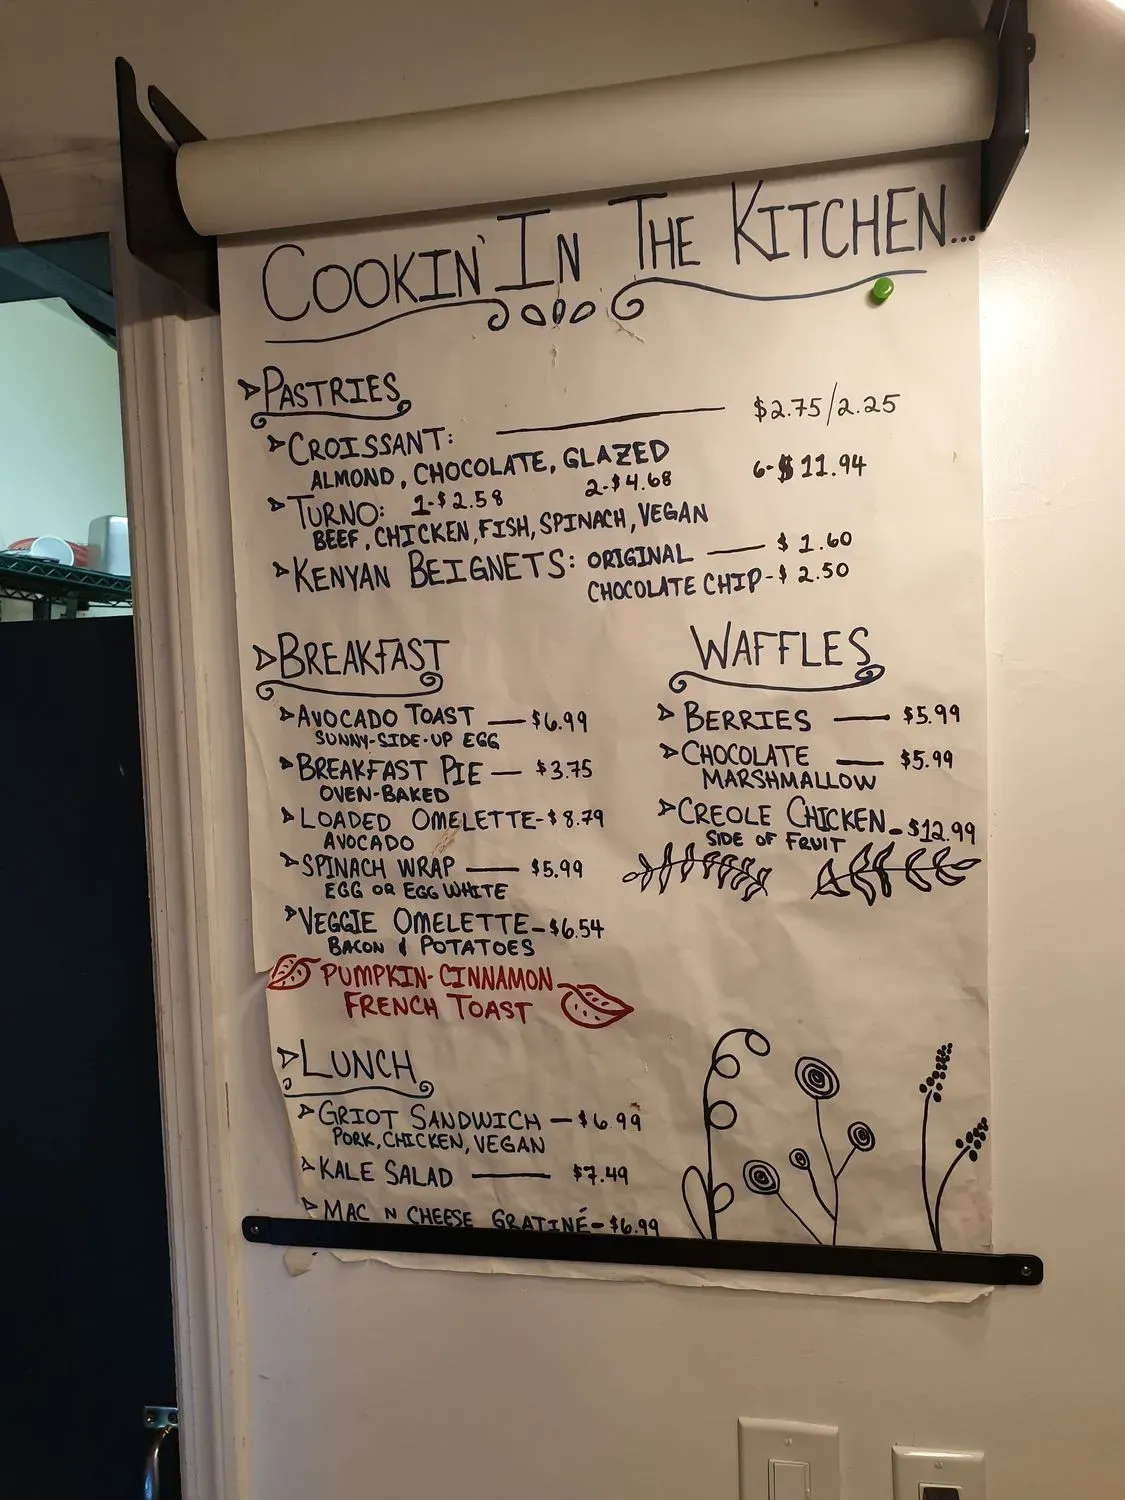 COOKIN' IN THE KITCHEN...
PASTRIES
CROISSANT: $2.75/2.25
ALMOND, CHOCOLATE, GLAZED
TURNO: 1-$2.58 2-$4.68 6-$11.94
BEEF, CHICKEN, FISH, SPINACH, VEGAN
KENYAN BEIGNETS: ORIGINAL — $1.60
CHOCOLATE CHIP-$2.50
BREAKFAST
AVOCADO TOAST — $6.99
SUNNY-SIDE-UP EGG
BREAKFAST PIE — $3.75
OVEN-BAKED
LOADED OMELETTE-$8.79
AVOCADO
SPINACH WRAP — $5.99
EGG OR EGG WHITE
VEGGIE OMELETTE-$6.54
BACON & POTATOES
PUMPKIN-CINNAMON
FRENCH TOAST
WAFFLES
BERRIES — $5.99
CHOCOLATE — $5.99
MARSHMALLOW
CREOLE CHICKEN-$12.99
SIDE OF FRUIT
LUNCH
GRIOT SANDWICH — $6.99
PORK, CHICKEN, VEGAN
KALE SALAD — $7.49
MAC N CHEESE GRATINÉ-$6.99